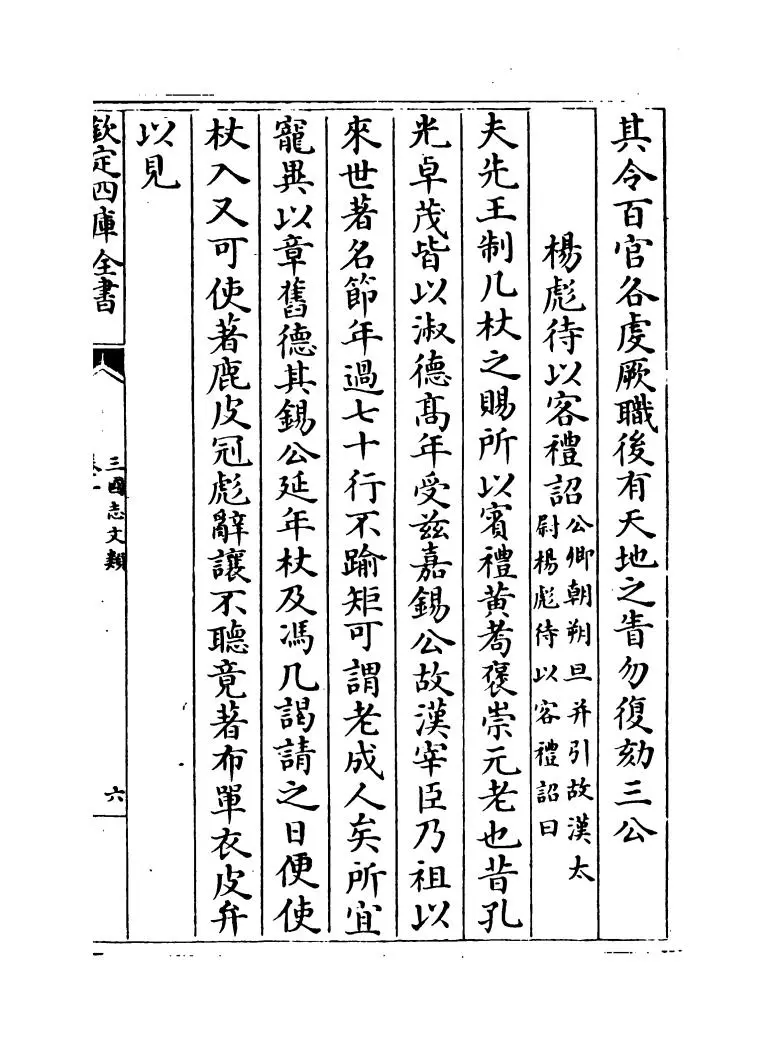 其令百官各虔厥職後有天地之眚勿復劾三公
楊彪待以客禮詔公卿朝朔旦并引故漢太
尉楊彪待以客禮詔曰
夫先王制几杖之賜所以賓禮黄耈褒崇元老也昔孔
光卓茂皆以淑德髙年受兹嘉錫公故漢宰臣乃祖以
來世著名節年過七十行不踰矩可謂老成人矣所宜
寵異以章舊德其錫公延年杖及馮几謁請之日便使
杖入又可使著鹿皮冠彪辭讓不聽竟著布單衣皮弁
以見
欽定四庫全書
三國志文類
六